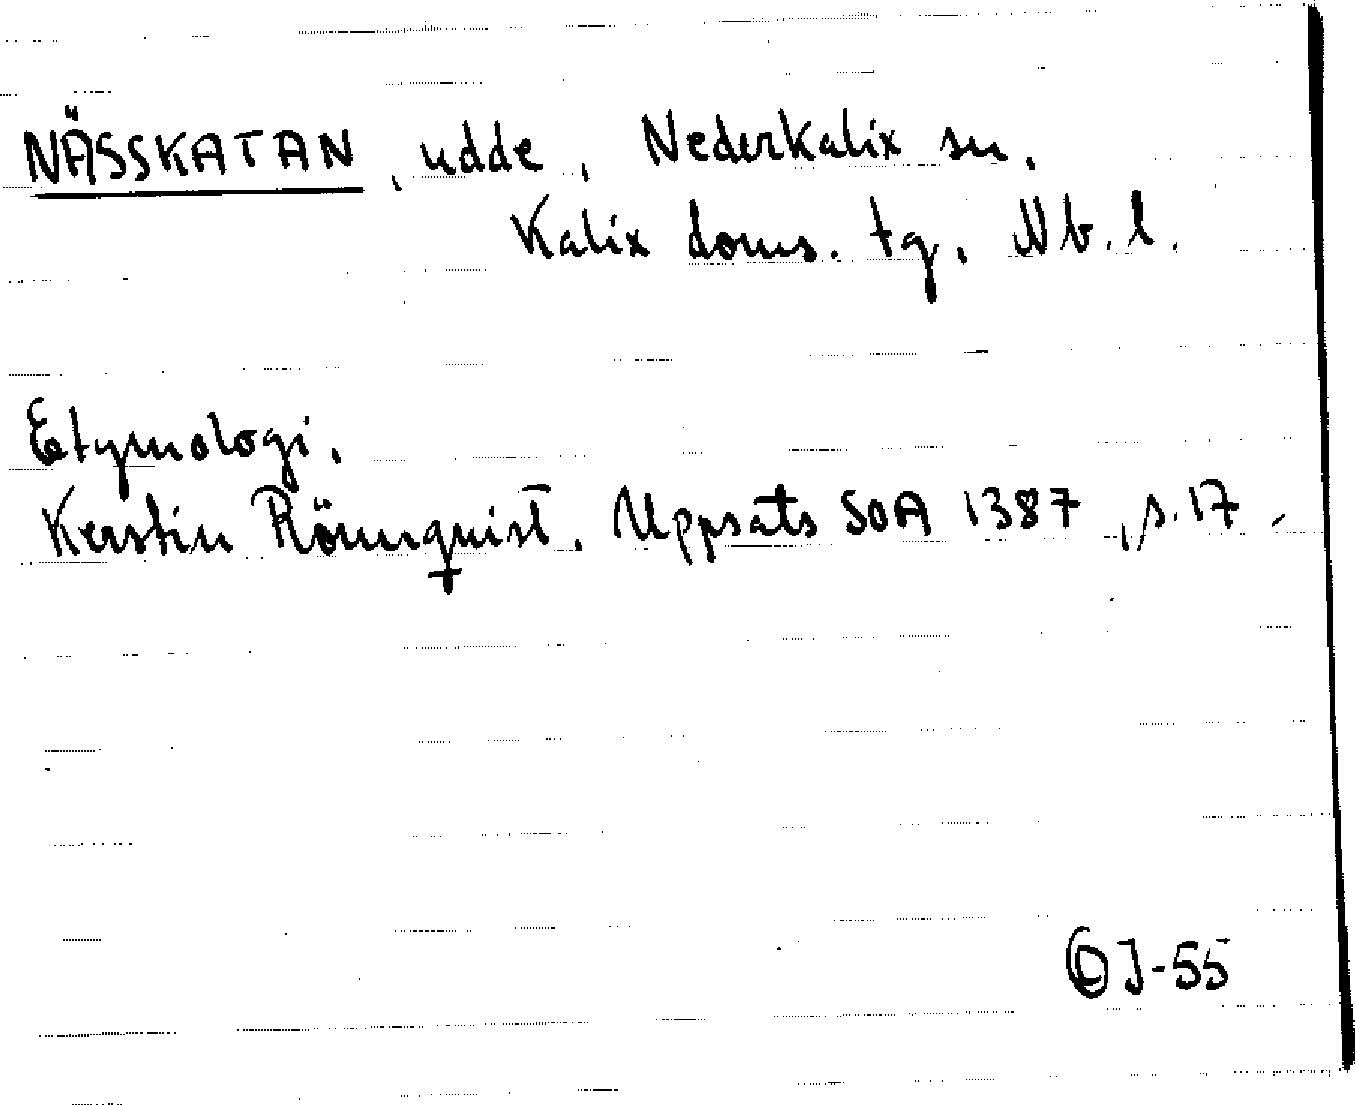 NÄSSKATAN, udde, Nederkalix sn,
Kalix doms. tg, Nb. l.
Etymologi.
Kerstin Rönnquist. Uppsats SOA 1387, s. 17.
J-55